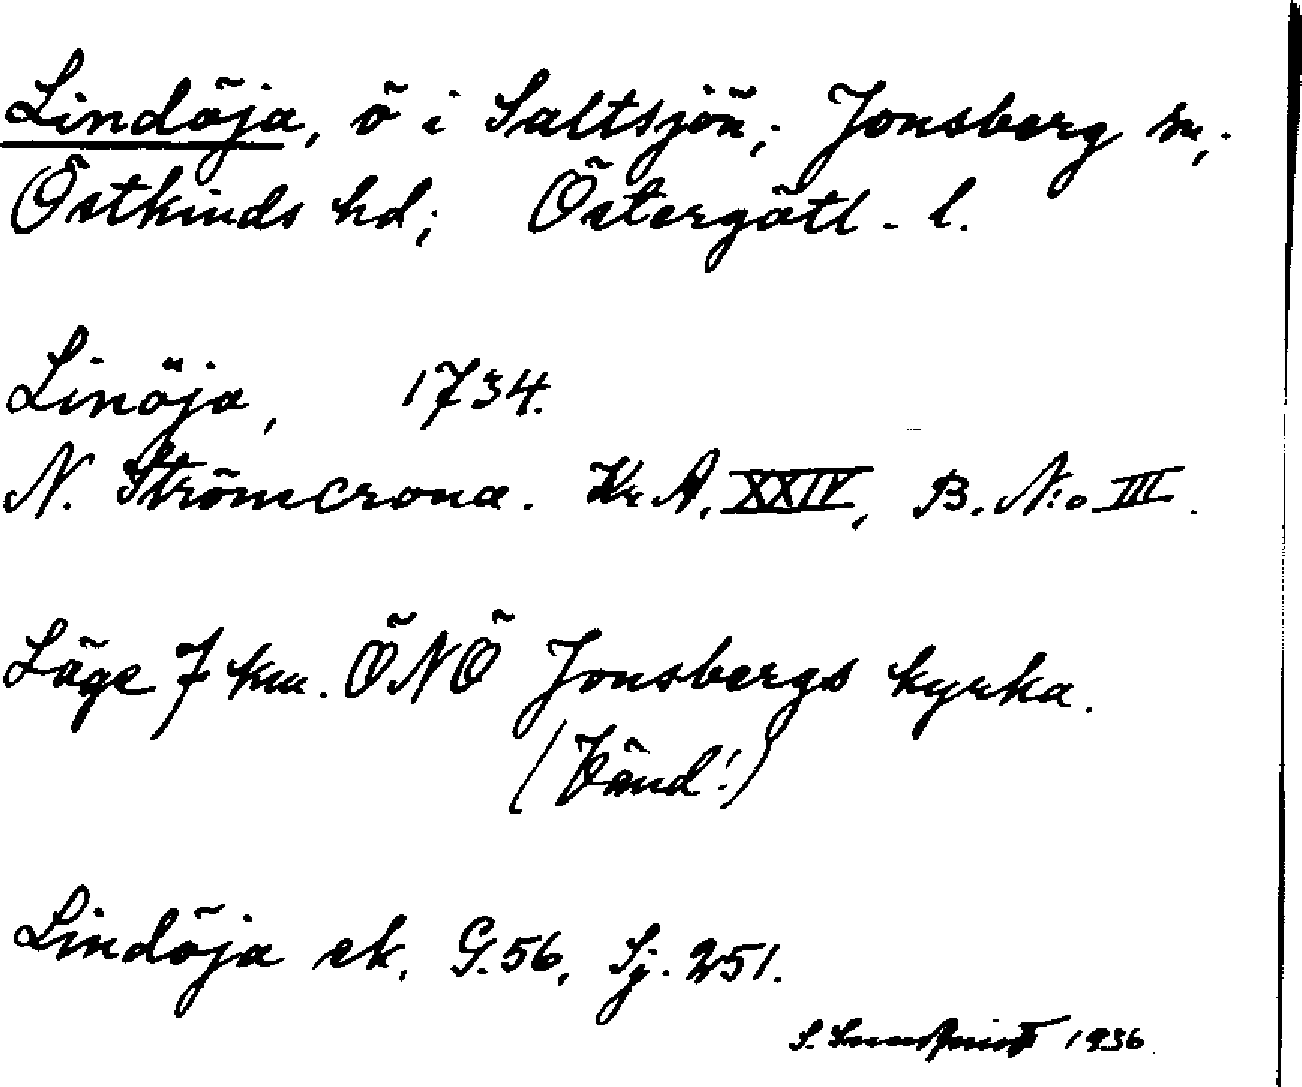 Lindöja, ö i Saltsjön; Jonsberg sn,;
Östkinds hd; Östergötl. l.
Linöja, 1734.
N. Strömcrona. Kr. A. XXIV, B. N:o III.
Läge 7 km. ÖNÖ Jonsbergs kyrka.
(Vänd!)
Lindöja ek. G. 56, Sj. 251.
S. 1936